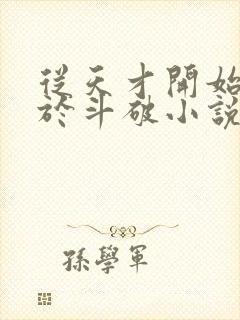 從天才開始
於斗破小說
孫學軍